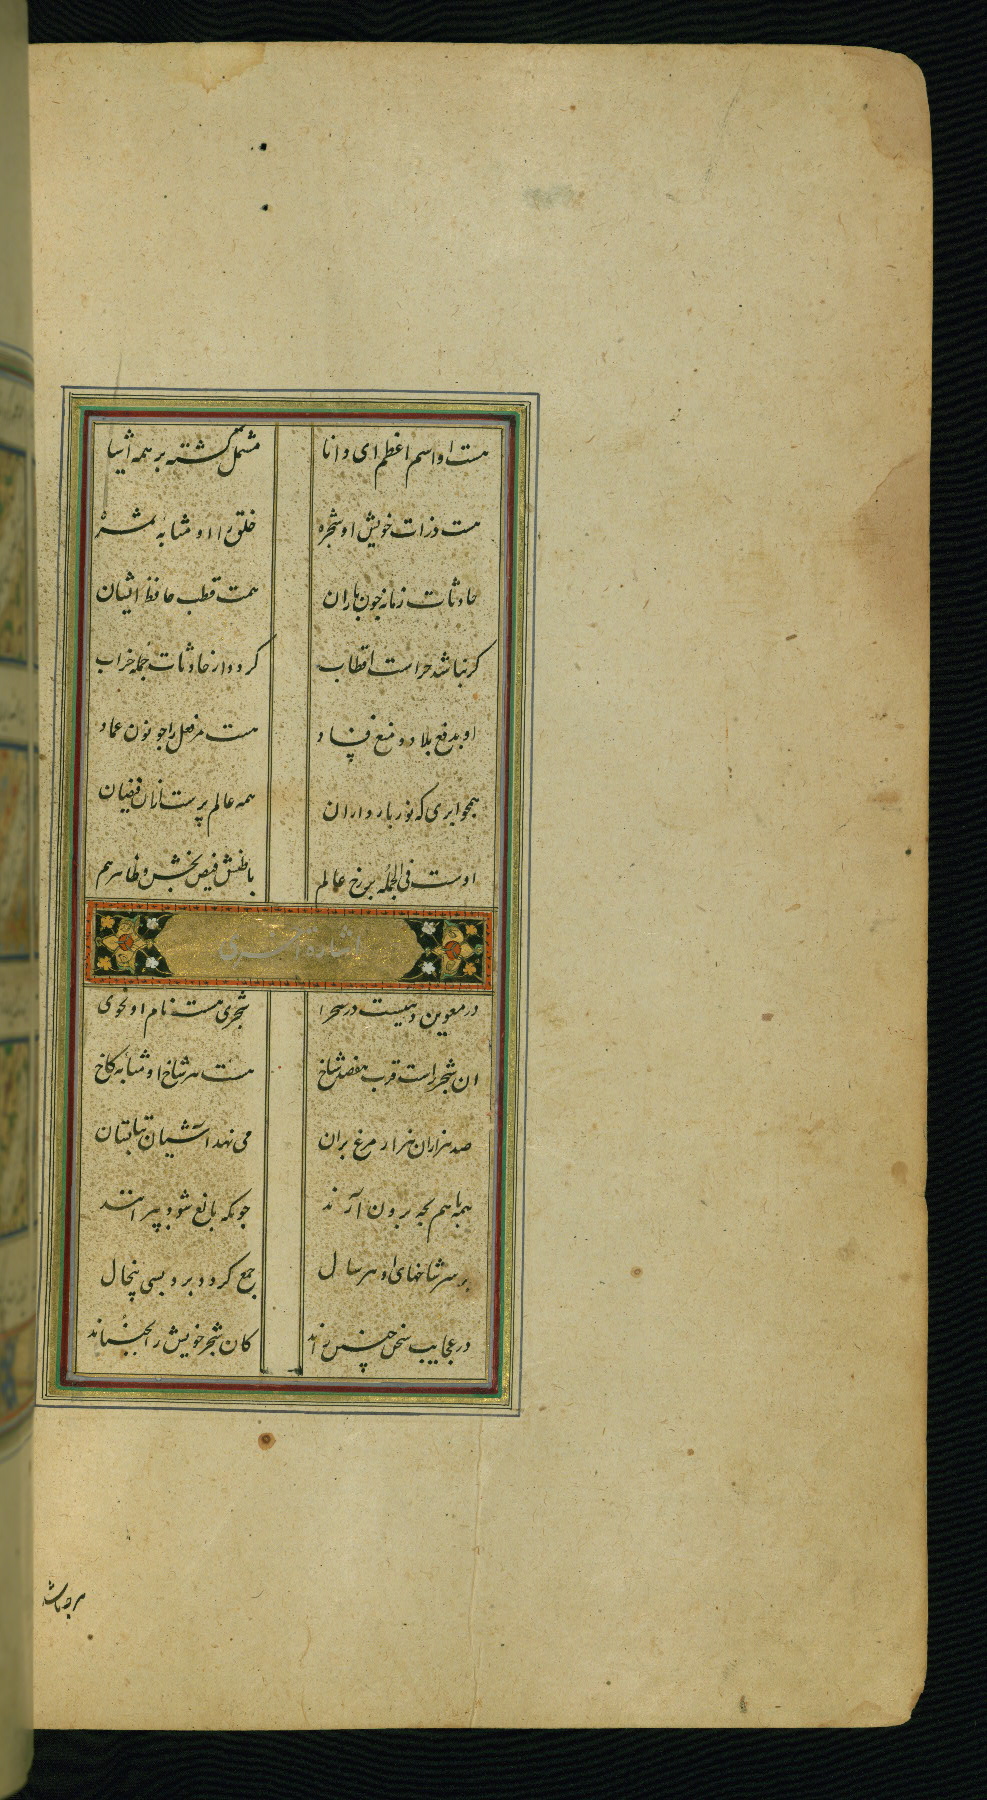 هست او اسم اعظم ای دانا مشتمل گشته بر همه اشیا
هست در ذات خویش او شجره خلق را او مشابه ثمره
حادثات زمانه چون باران همت قطب حافظ ایشان
کر نباشد حراست اقطاب کردد از حادثات جمله خراب
او بدفع بلا و منع فساد هست مر اجو نون عماد
همچو ابری که نور بارد از آن همه عالم پرست از آن فیضان
اوست فی الجمله برزخ عالم باطنش فیض بخش و ظاهر هم
اشارة اخری
در صحرا شجری هست نام او
ان شجر راست قرب هفصد شاخ هست هر شاخ او مشابه کاخ
صد هزاران هزار مرغ بران می نهد آشیان تابستان
همه با هم بجه برون آرند جونکه بالغ شود بپرانند
بر سر شاخهای او هر سال جمع کردد برو بسی پنجال
در عجایب سخن چنین کان شجر خویش را بجنباند
هرجه باشد